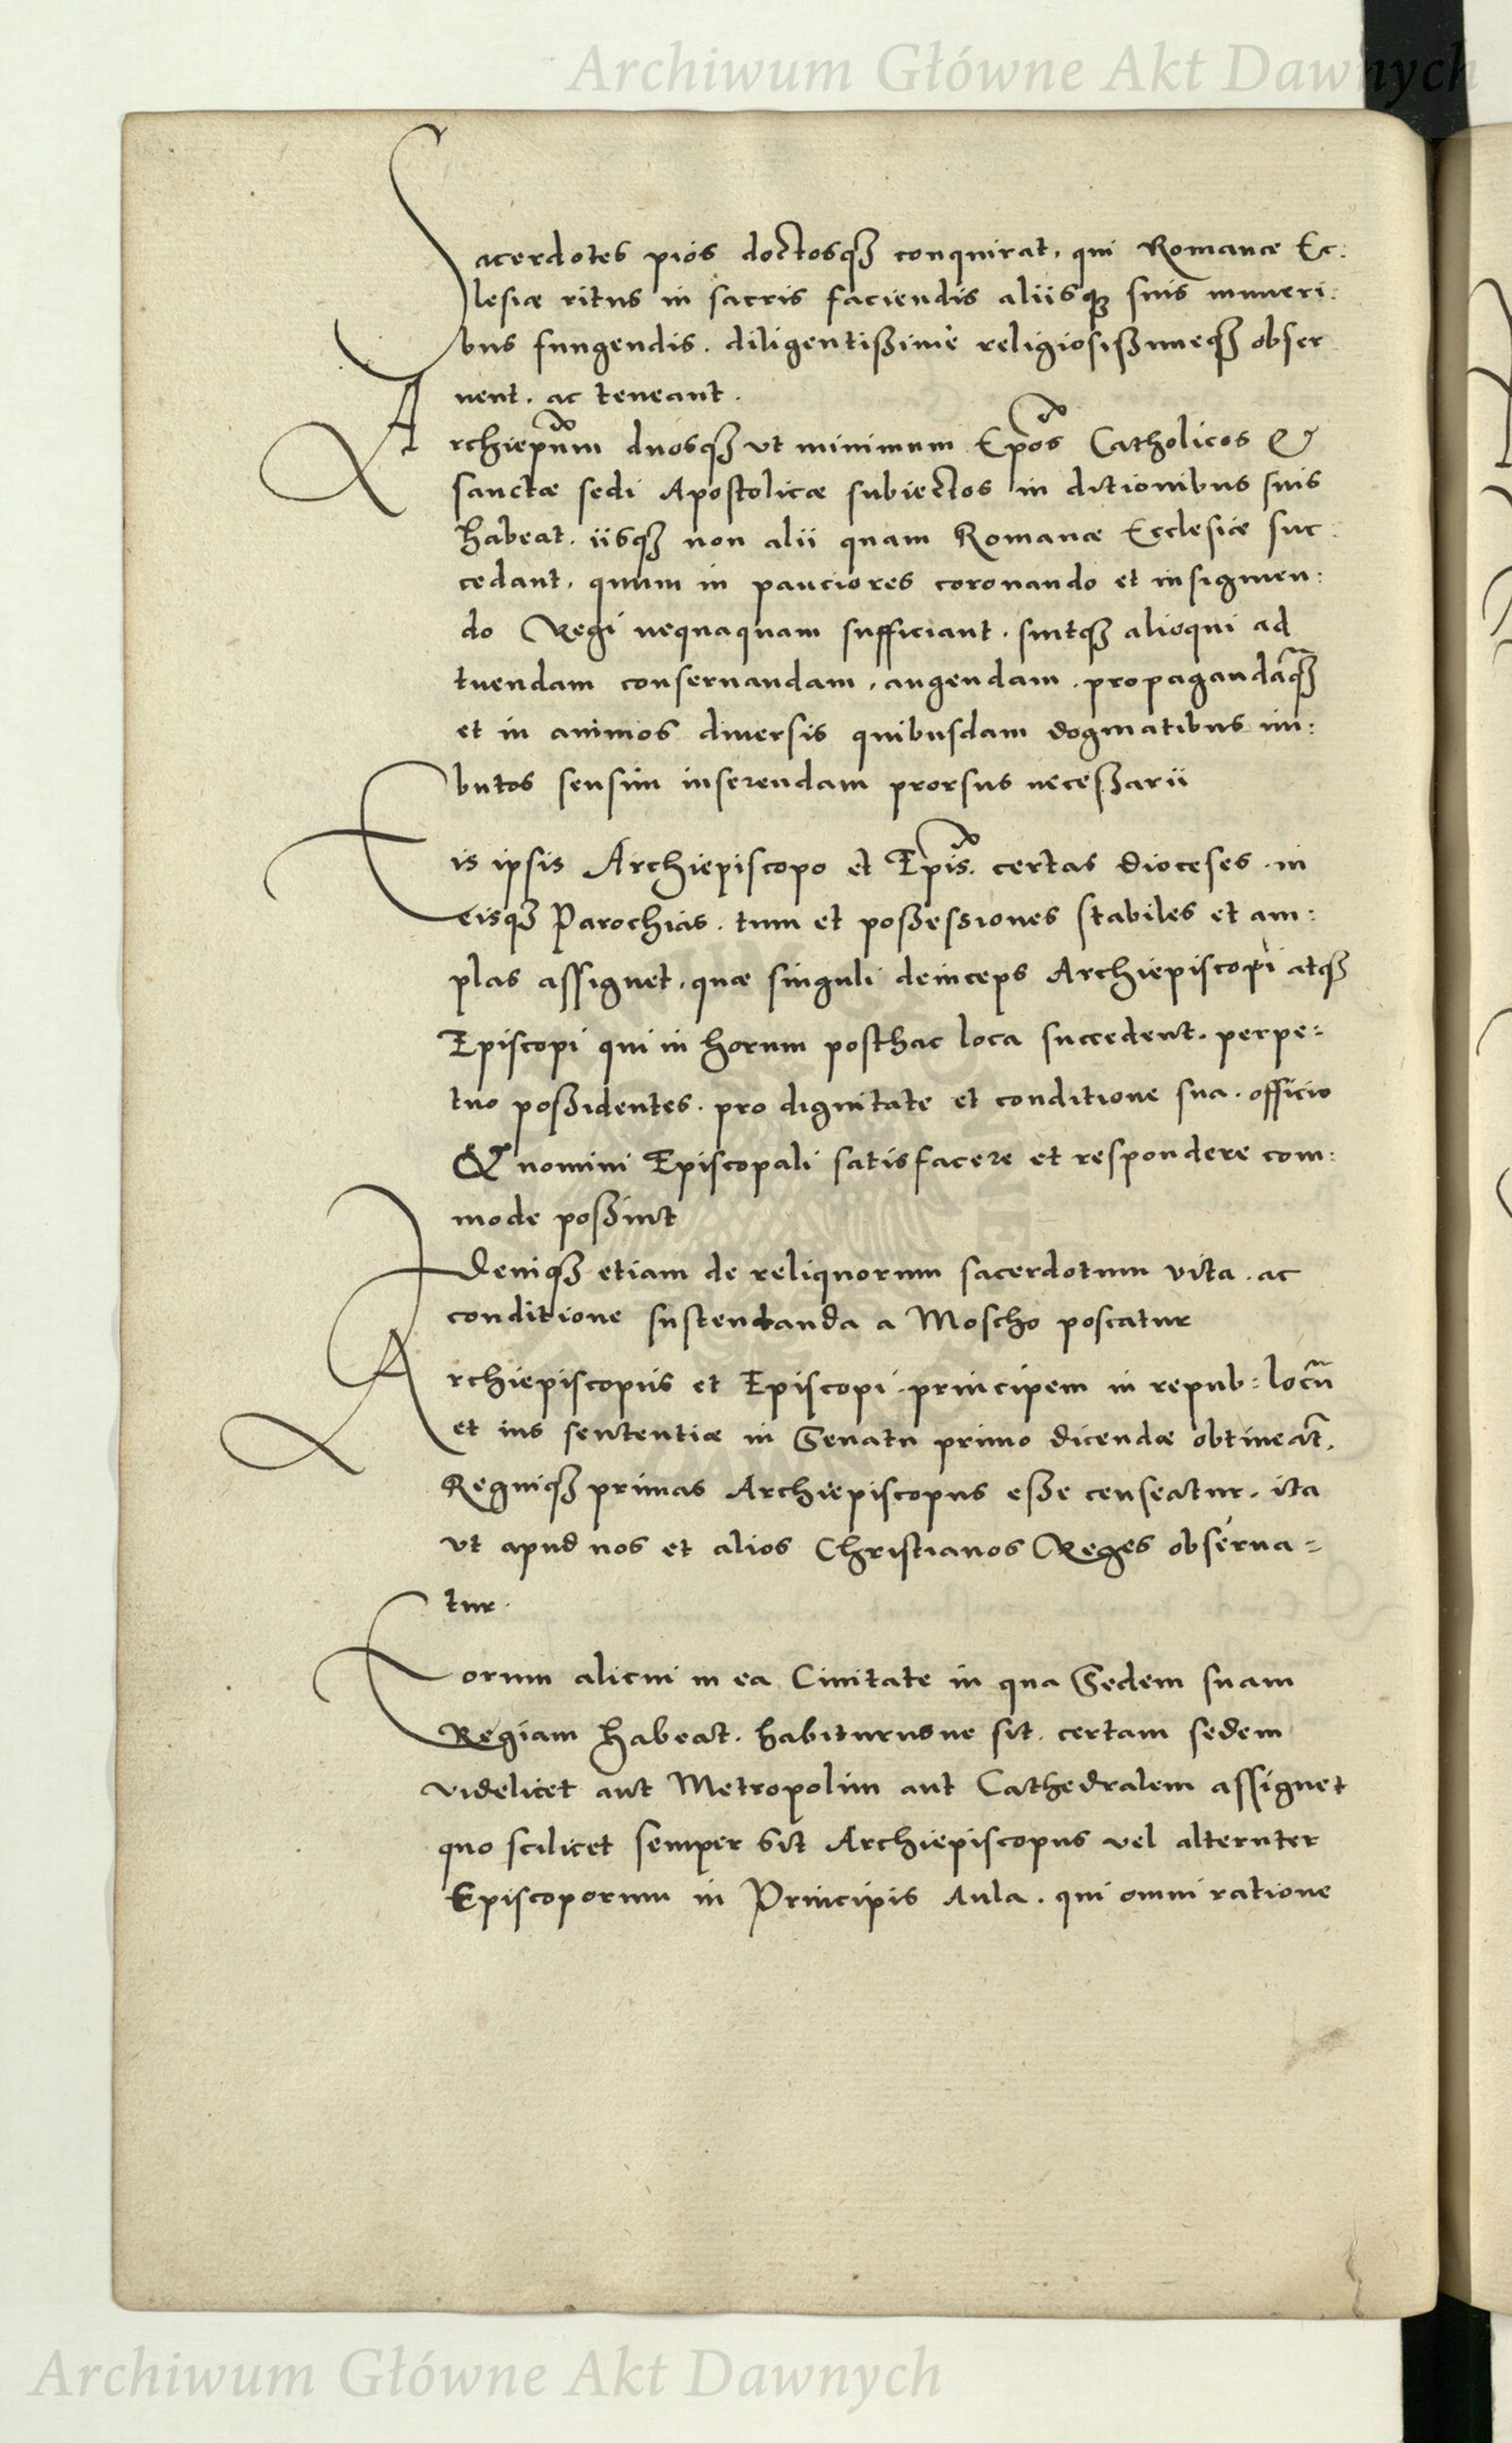 Archiwum Główne Akt Dawnych
Sacerdotes pios doctosq₃ conquirat, qui Romanæ Ec:
lesiæ ritus in sacris faciendis aliisq₃ suis muneri:
bus fungendis. diligentißimè religiosißimeq₃ obser
uent. ac teneant.
Archiepũm duosq₃ vt minimum Epõs Catholicos &
sanctæ sedi Apostolicæ subiectos in dictionibus suis
habeat. iisq₃ non alii quam Romanæ Ecclesiæ suc:
cedant, quum in pauciores coronando et insignien:
do Regi nequaquam sufficiant. sintq₃ alioqui ad
tuendam conseruandam, augendam. propagandãq₃
et in animos diuersis quibusdam dogmatibus im:
butos sensim inserendam prorsus neceßarii
Eis ipsis Archiepiscopo et Epĩs. certas dioceses. in
eisq₃ Parochias. tum et poßessiones stabiles et am:
plas assignet, quæ singuli deinceps Archiepiscopi atq₃
Episcopi qui in horum posthac loca succedent. perpe=
tuo poßidentes. pro dignitate et conditione sua. officio
& nomini Episcopali satisfacere et respondere com:
mode poßint
Ideniq₃ etiam de reliquorum sacerdotum vita. ac
conditione sustentanda a Moscho poscatur
Archiepiscopus et Episcopi. principem in repub: locũ
et ius sententiæ in Senatu primo dicendæ obtineãt.
Regniq₃ primas Archiepiscopus eße censeatur. ita
vt apud nos et alios Christianos Reges obserua=
tur.
Eorum alicui in ea Ciuitate in qua Sedem suam
Regiam habeat. habiturusne sit. certam sedem
videlicet aut Metropolim aut Cathedralem assignet
quo scilicet semper sit Archiepiscopus vel alternter
Episcoporum in Principis Aula. qui omni ratione
Archiwum Główne Akt Dawnych